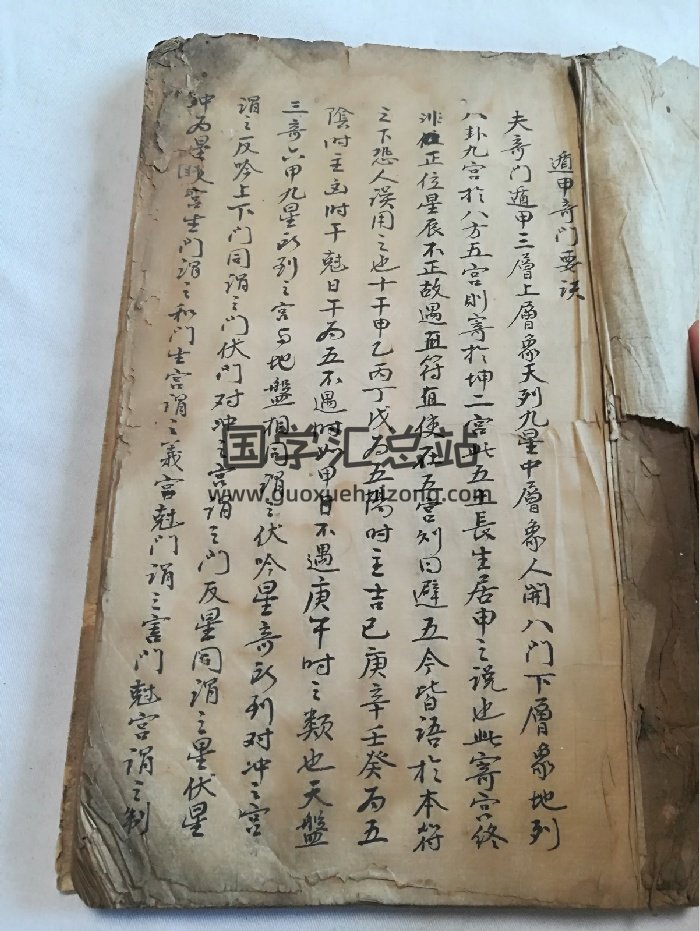 遁甲奇门要诀
夫奇门遁甲三層上層象天列九星中層象人開八门下層象地列
八卦九宫於八方五宫则寄於坤二宫此五土長生居申之说也此寄宫终
非正位星辰不正故遇直符直使在五宫则曰避五今皆语於本符
之下恐人误用之也十干甲乙丙丁戊为五陽时主吉己庚辛壬癸为五
陰时主凶时干尅日干为五不遇时如甲日不遇庚午时之類也天盤
三奇六甲九星所到之宫与地盤相同谓之伏吟星奇所到对冲之宫
谓之反吟上下门同谓之门伏门对冲之宫谓之门反星同谓之星伏星
冲为星反宫生门谓之和门生宫谓之義宫尅门谓之害门尅宫谓之制
国学汇总站
www.guoxuehuizong.com